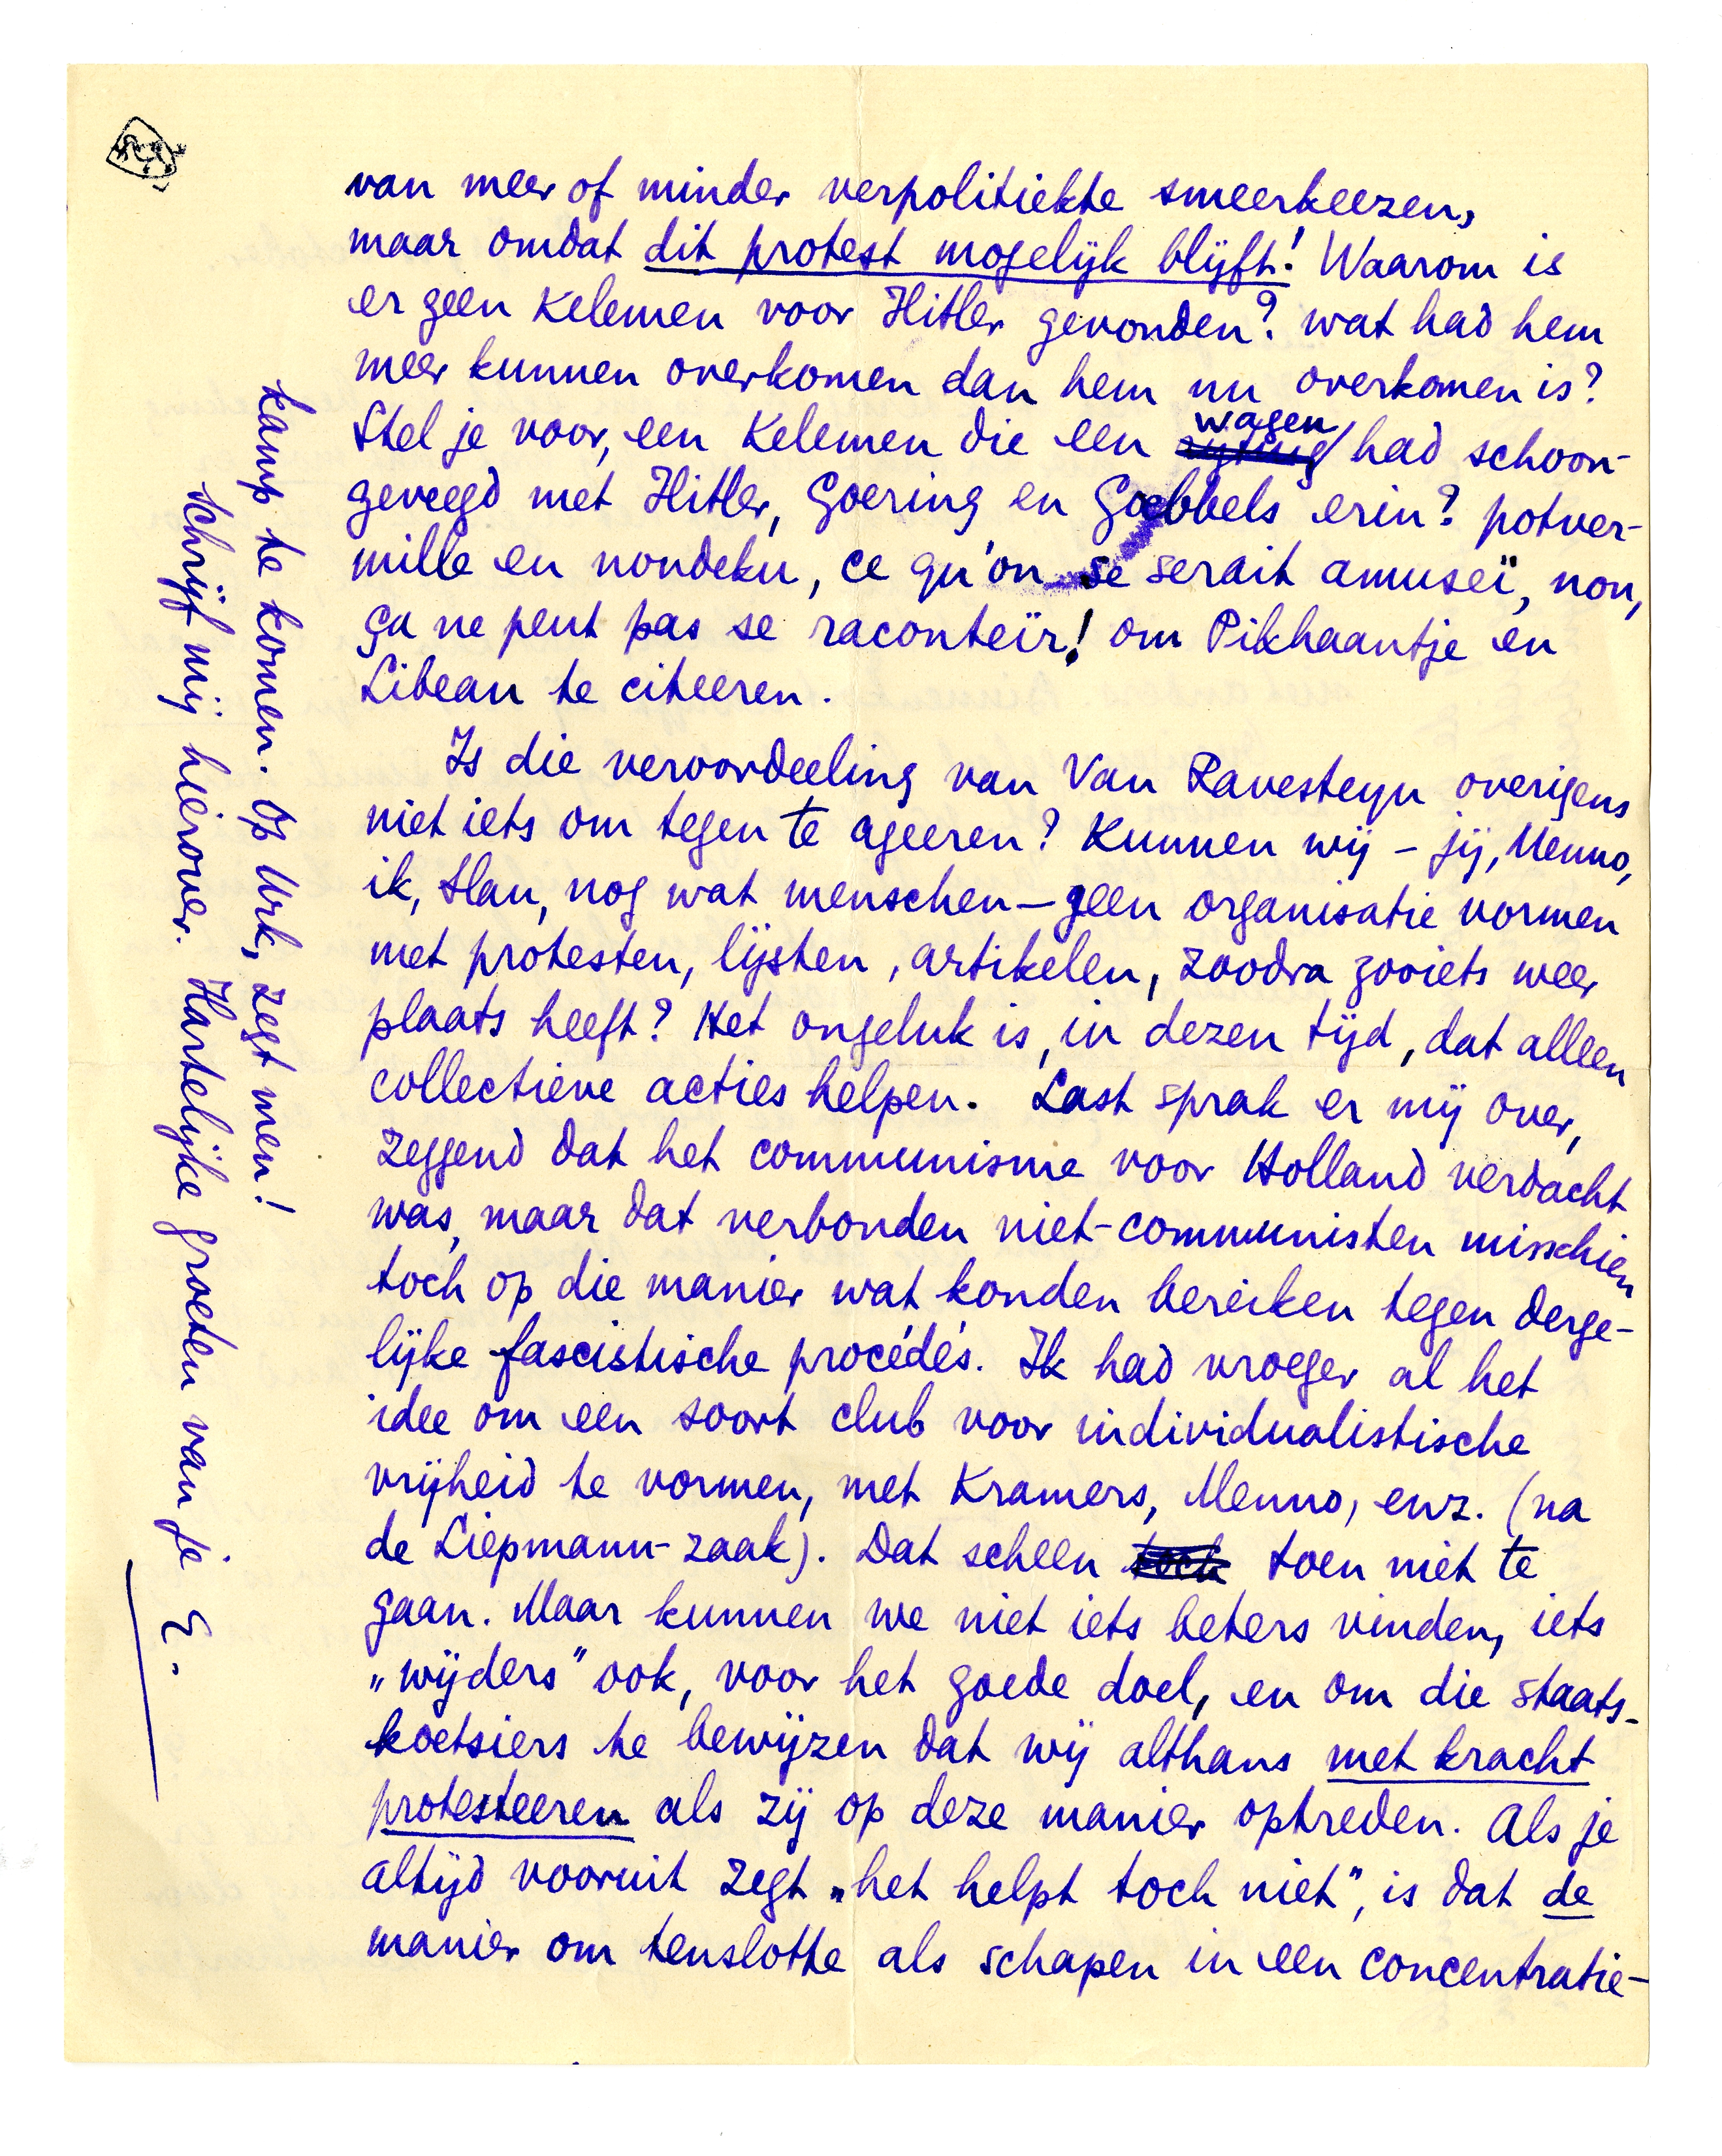 van meer of minder verpolitiekte smeerkeezen,
maar omdat dit protest mogelijk blijft! Waarom is
er geen Kelemen voor Hitler gevonden? wat had hem
meer kunnen overkomen dan hem nu overkomen is?
Stel je voor, een Kelemen die een wagen had schoon-
geveegd met Hitler, Goering en Goebbels erin? potver-
mille en nondeku, ce qu'on se serait amuseï, non,
ça ne peut pas se raconteïr! om Pikhaantje en
Libeau te citeeren.
Is die veroordeeling van Van Ravesteyn overigens
niet iets om tegen te ageeren? Kunnen wij – jij, Menno,
ik, Slau, nog wat menschen – geen organisatie vormen
met protesten, lijsten, artikelen, zoodra zooiets weer
plaats heeft? Het ongeluk is, in dezen tijd, dat alleen
collectieve acties helpen. Last sprak er mij over,
zeggend dat het communisme voor Holland verdacht
was, maar dat verbonden niet-communisten misschien
toch op die manier wat konden bereiken tegen derge-
lijke fascistische procédés. Ik had vroeger al het
idee om een soort club voor individualistische
vrijheid te vormen, met Kramers, Menno, enz. (na
de Liepmann-zaak). Dat scheen toen niet te
gaan. Maar kunnen we niet iets beters vinden, iets
„wijders" ook, voor het goede doel, en om die staats-
koetsiers te bewijzen dat wij althans met kracht
protesteeren als zij op deze manier optreden. Als je
altijd vooruit zegt „het helpt toch niet", is dat de
manier om tenslotte als schapen in een concentratie-
kamp te komen. Op Urk, zegt men!
Schrijf mij hierover. Hartelijke groeten van je E.